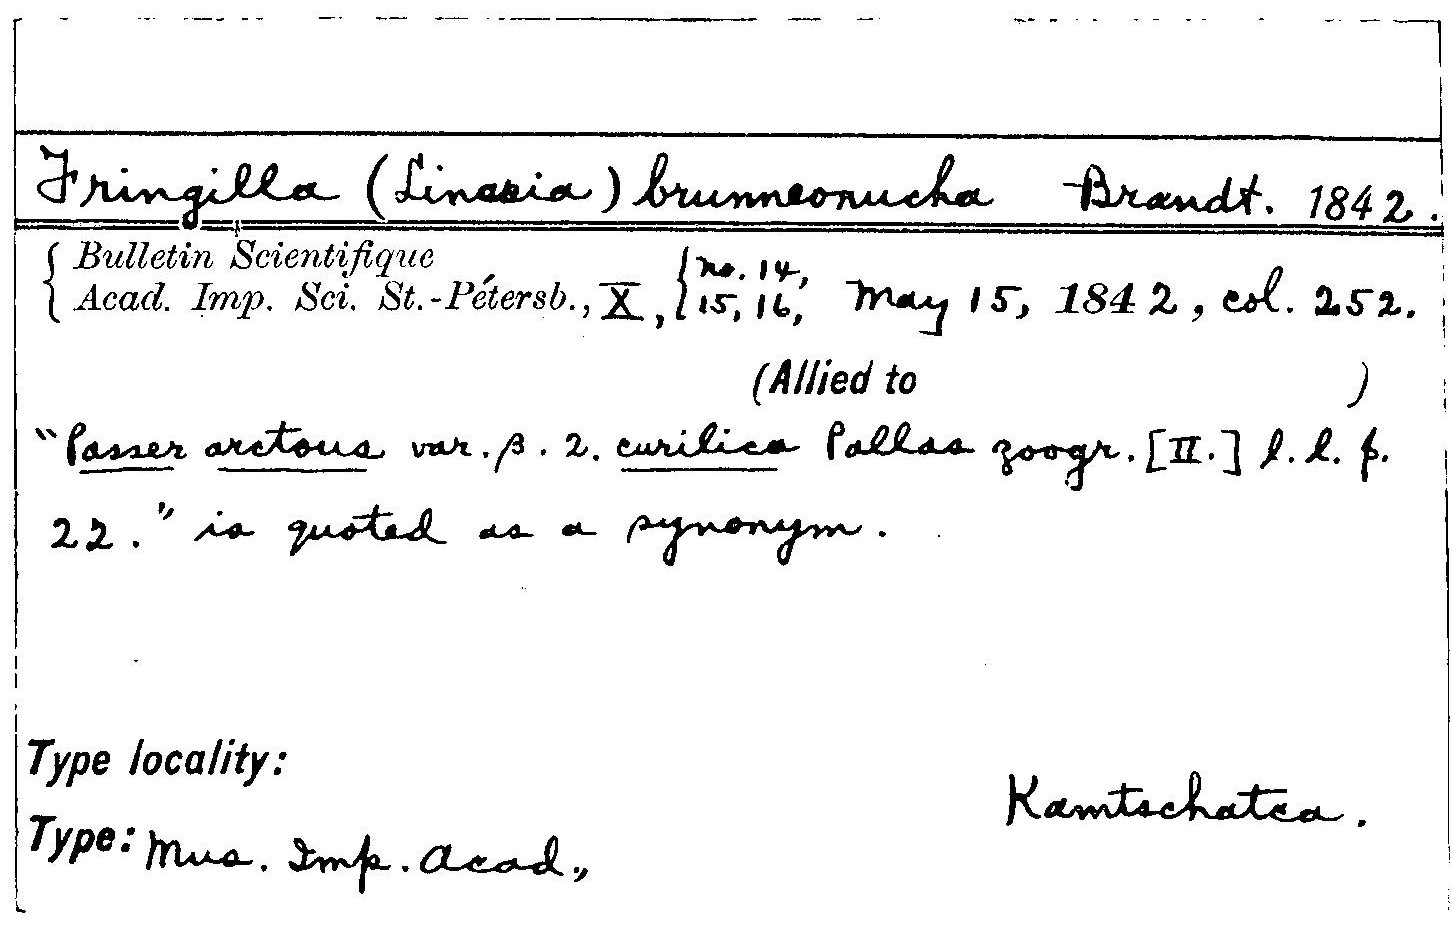 Fringilla (Linaria) brunneonucha Brandt. 1842.
Bulletin Scientifique
Acad. Imp. Sci. St.-Pétersb., X, {no. 14, 15, 16, May 15, 1842, col. 252.
(Allied to )
"Passer arctous var. β. 2. curilica Pallas zoogr. [II.] l. l. p.
22." is quoted as a synonym.
Type locality:
Kamtschatca.
Type: Mus. Imp. Acad.,